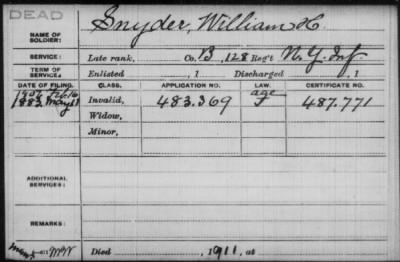 DEAD
NAME OF SOLDIER: Snyder, William H.
SERVICE: Late rank, Co. B, 128 Reg't N.Y. Inf.
TERM OF SERVICE: Enlisted , 1 Discharged , 1
DATE OF FILING. CLASS. APPLICATION NO. LAW. CERTIFICATE NO.
1907 Feb 16 age
1883 May 11 Invalid, 483.369 F 487.771
Widow,
Minor,
ADDITIONAL SERVICES:
REMARKS:
Died 1911, at